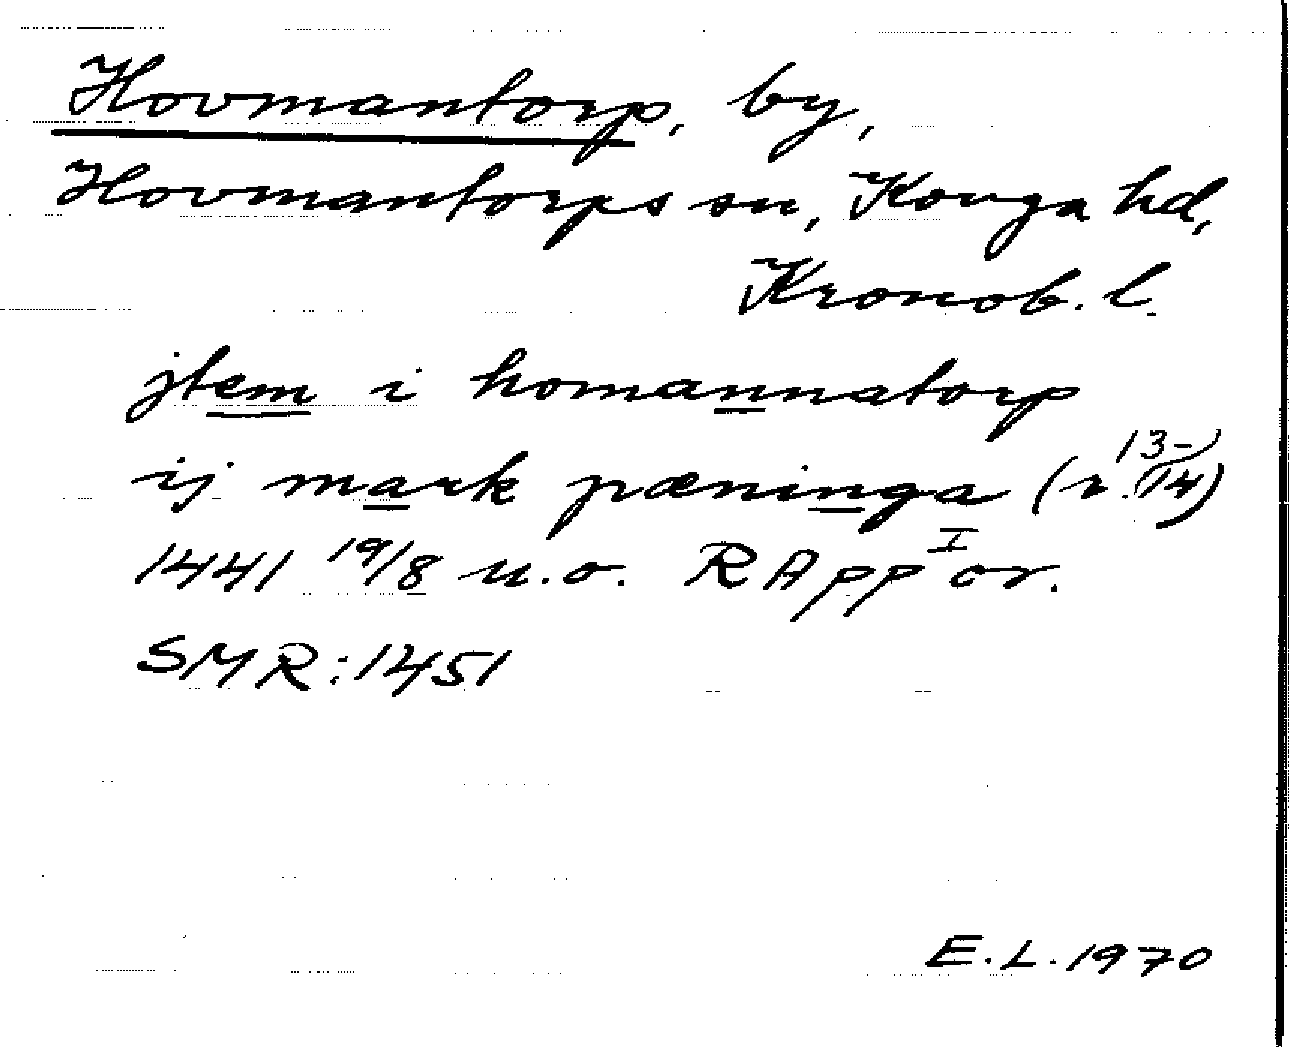 Hovmantorp, by,
Hovmantorps sn, Konga hd,
Kronob. l.
jtem i homannatorp
ij mark pæninga (r. 13-14)
1441 19/8 u.o. RApp I or.
SMR: 1451
E.L. 1970